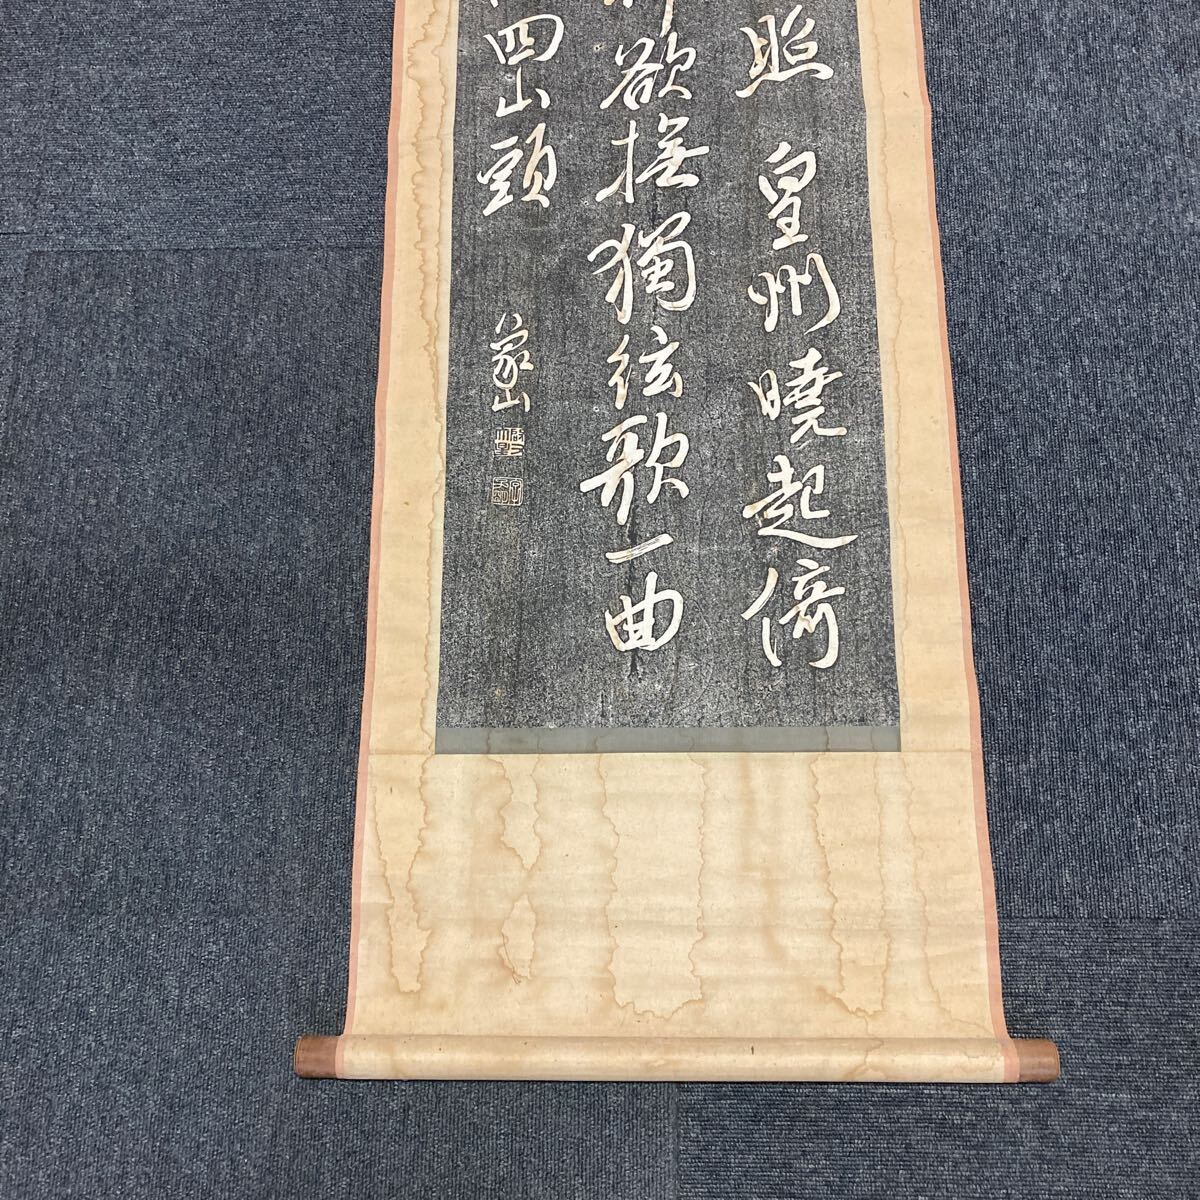 照 皇州曉起倚
欲撫獨弦歌一曲
四山頭
象山